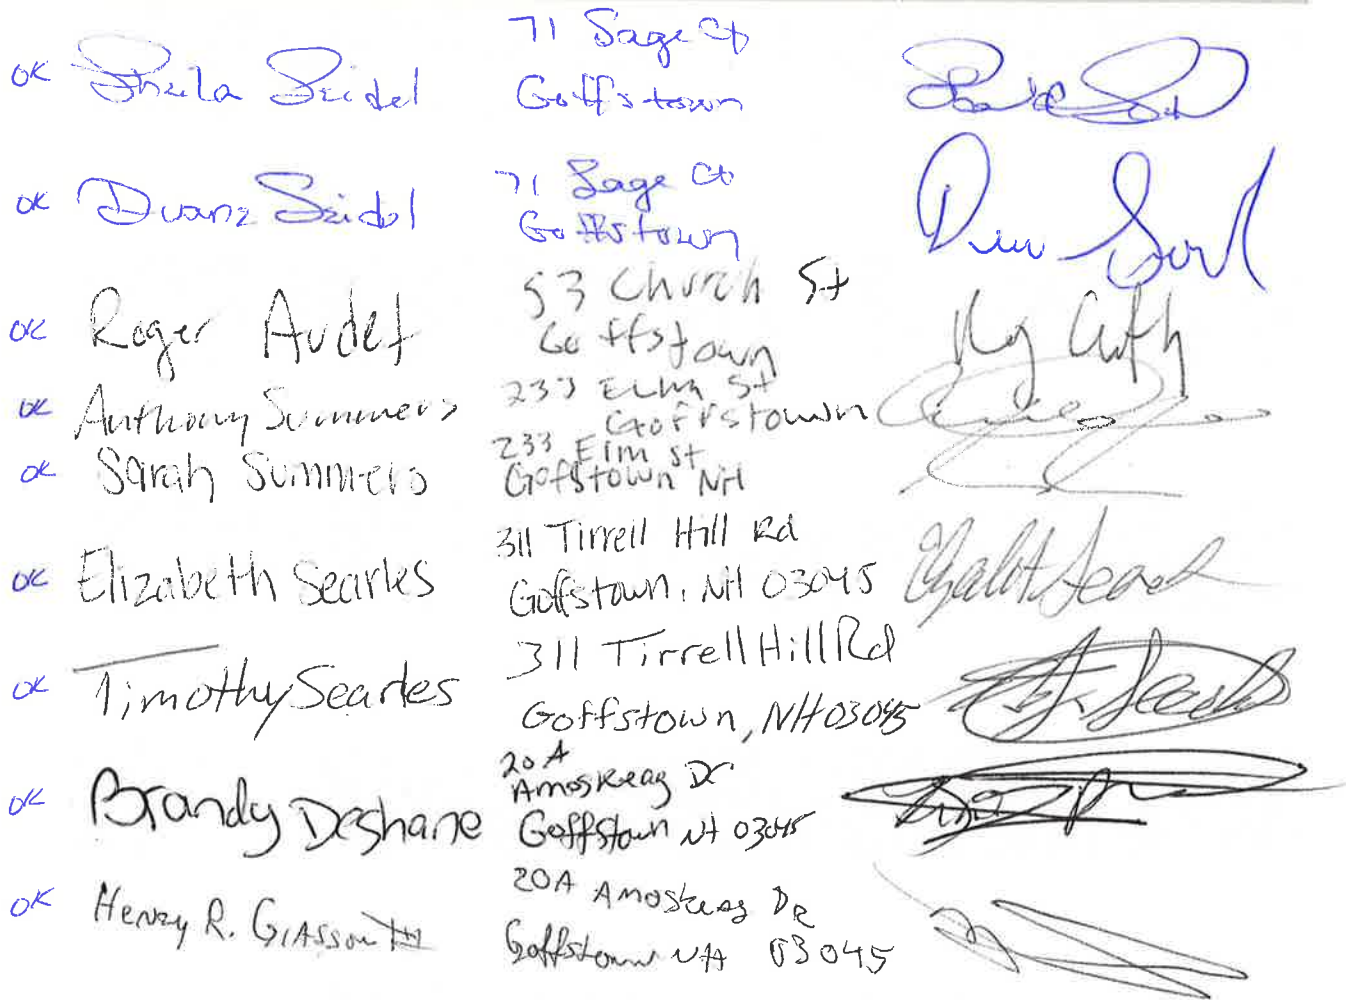 71 Sage Ct
OK Sheila Seidel Goffstown
OK Duane Seidel 71 Sage Ct
Goffstown
OK Roger Audet 53 Church St
Goffstown
OK Anthony Summers 233 Elm St
Goffstown
OK Sarah Summers 233 Elm St
Goffstown NH
OK Elizabeth Searles 311 Tirrell Hill Rd
Goffstown, NH 03045
OK Timothy Searles 311 Tirrell Hill Rd
Goffstown, NH 03045
20 A
Amoskeag Dr
OK Brandy Deshane Goffstown NH 03045
OK Henry R. Glasson III 20A Amoskeag DR
Goffstown NH 03045